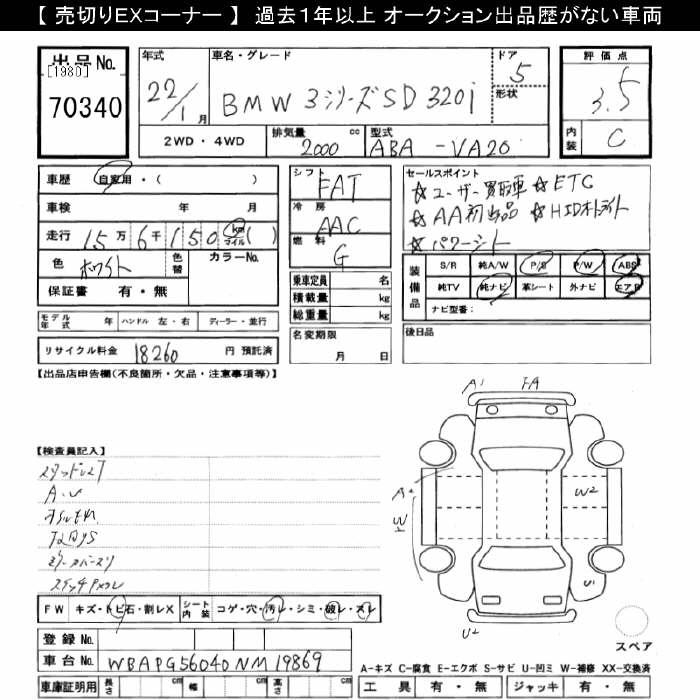 【 売切りEXコーナー 】 過去１年以上 オークション出品歴がない車両
出品No.
[1980]
70340
年式
22/1 月
車名・グレード
BMW 3シリーズSD 320i
ドア
5
形状
評価点
3.5
内装
C
2WD・4WD
排気量
2000 cc
型式
ABA-VA20
車歴 自家用・( )
車検 年 月
走行 15万6千150 km マイル ( )
色 ホワイト
色替
カラーNo.
保証書 有・無
シフト
FAT
冷房
AAC
燃料
G
乗車定員 名
積載量 kg
総重量 kg
セールスポイント
☆ユーザー買取車 ☆ETC
☆AA初出品 ☆HIDオートライト
☆パワーシート
装備品
S/R 純A/W P/S P/W ABS
純TV 純ナビ 革シート 外ナビ エアB
ナビ型番:
モデル年式 年 ハンドル 左・右 ディーラー・並行
名変期限
月 日
後日品
リサイクル料金 18260 円 預託済
【出品店申告欄(不良箇所・欠品・注意事項等)】
A1 FA
【検査員記入】
A.U
A2
W2
W
U1
U2
FW キズ・トビ石・割レX
シート内装 コゲ・穴・汚レ・シミ・破レ・スレ
登録No.
車台No. WBAPG56040NM19869
車庫証明用 長さ cm 幅 cm 高さ cm
スペア
A-キズ C-腐食 E-エクボ S-サビ U-凹ミ W-補修 XX-交換済
工具 有・無 ジャッキ 有・無